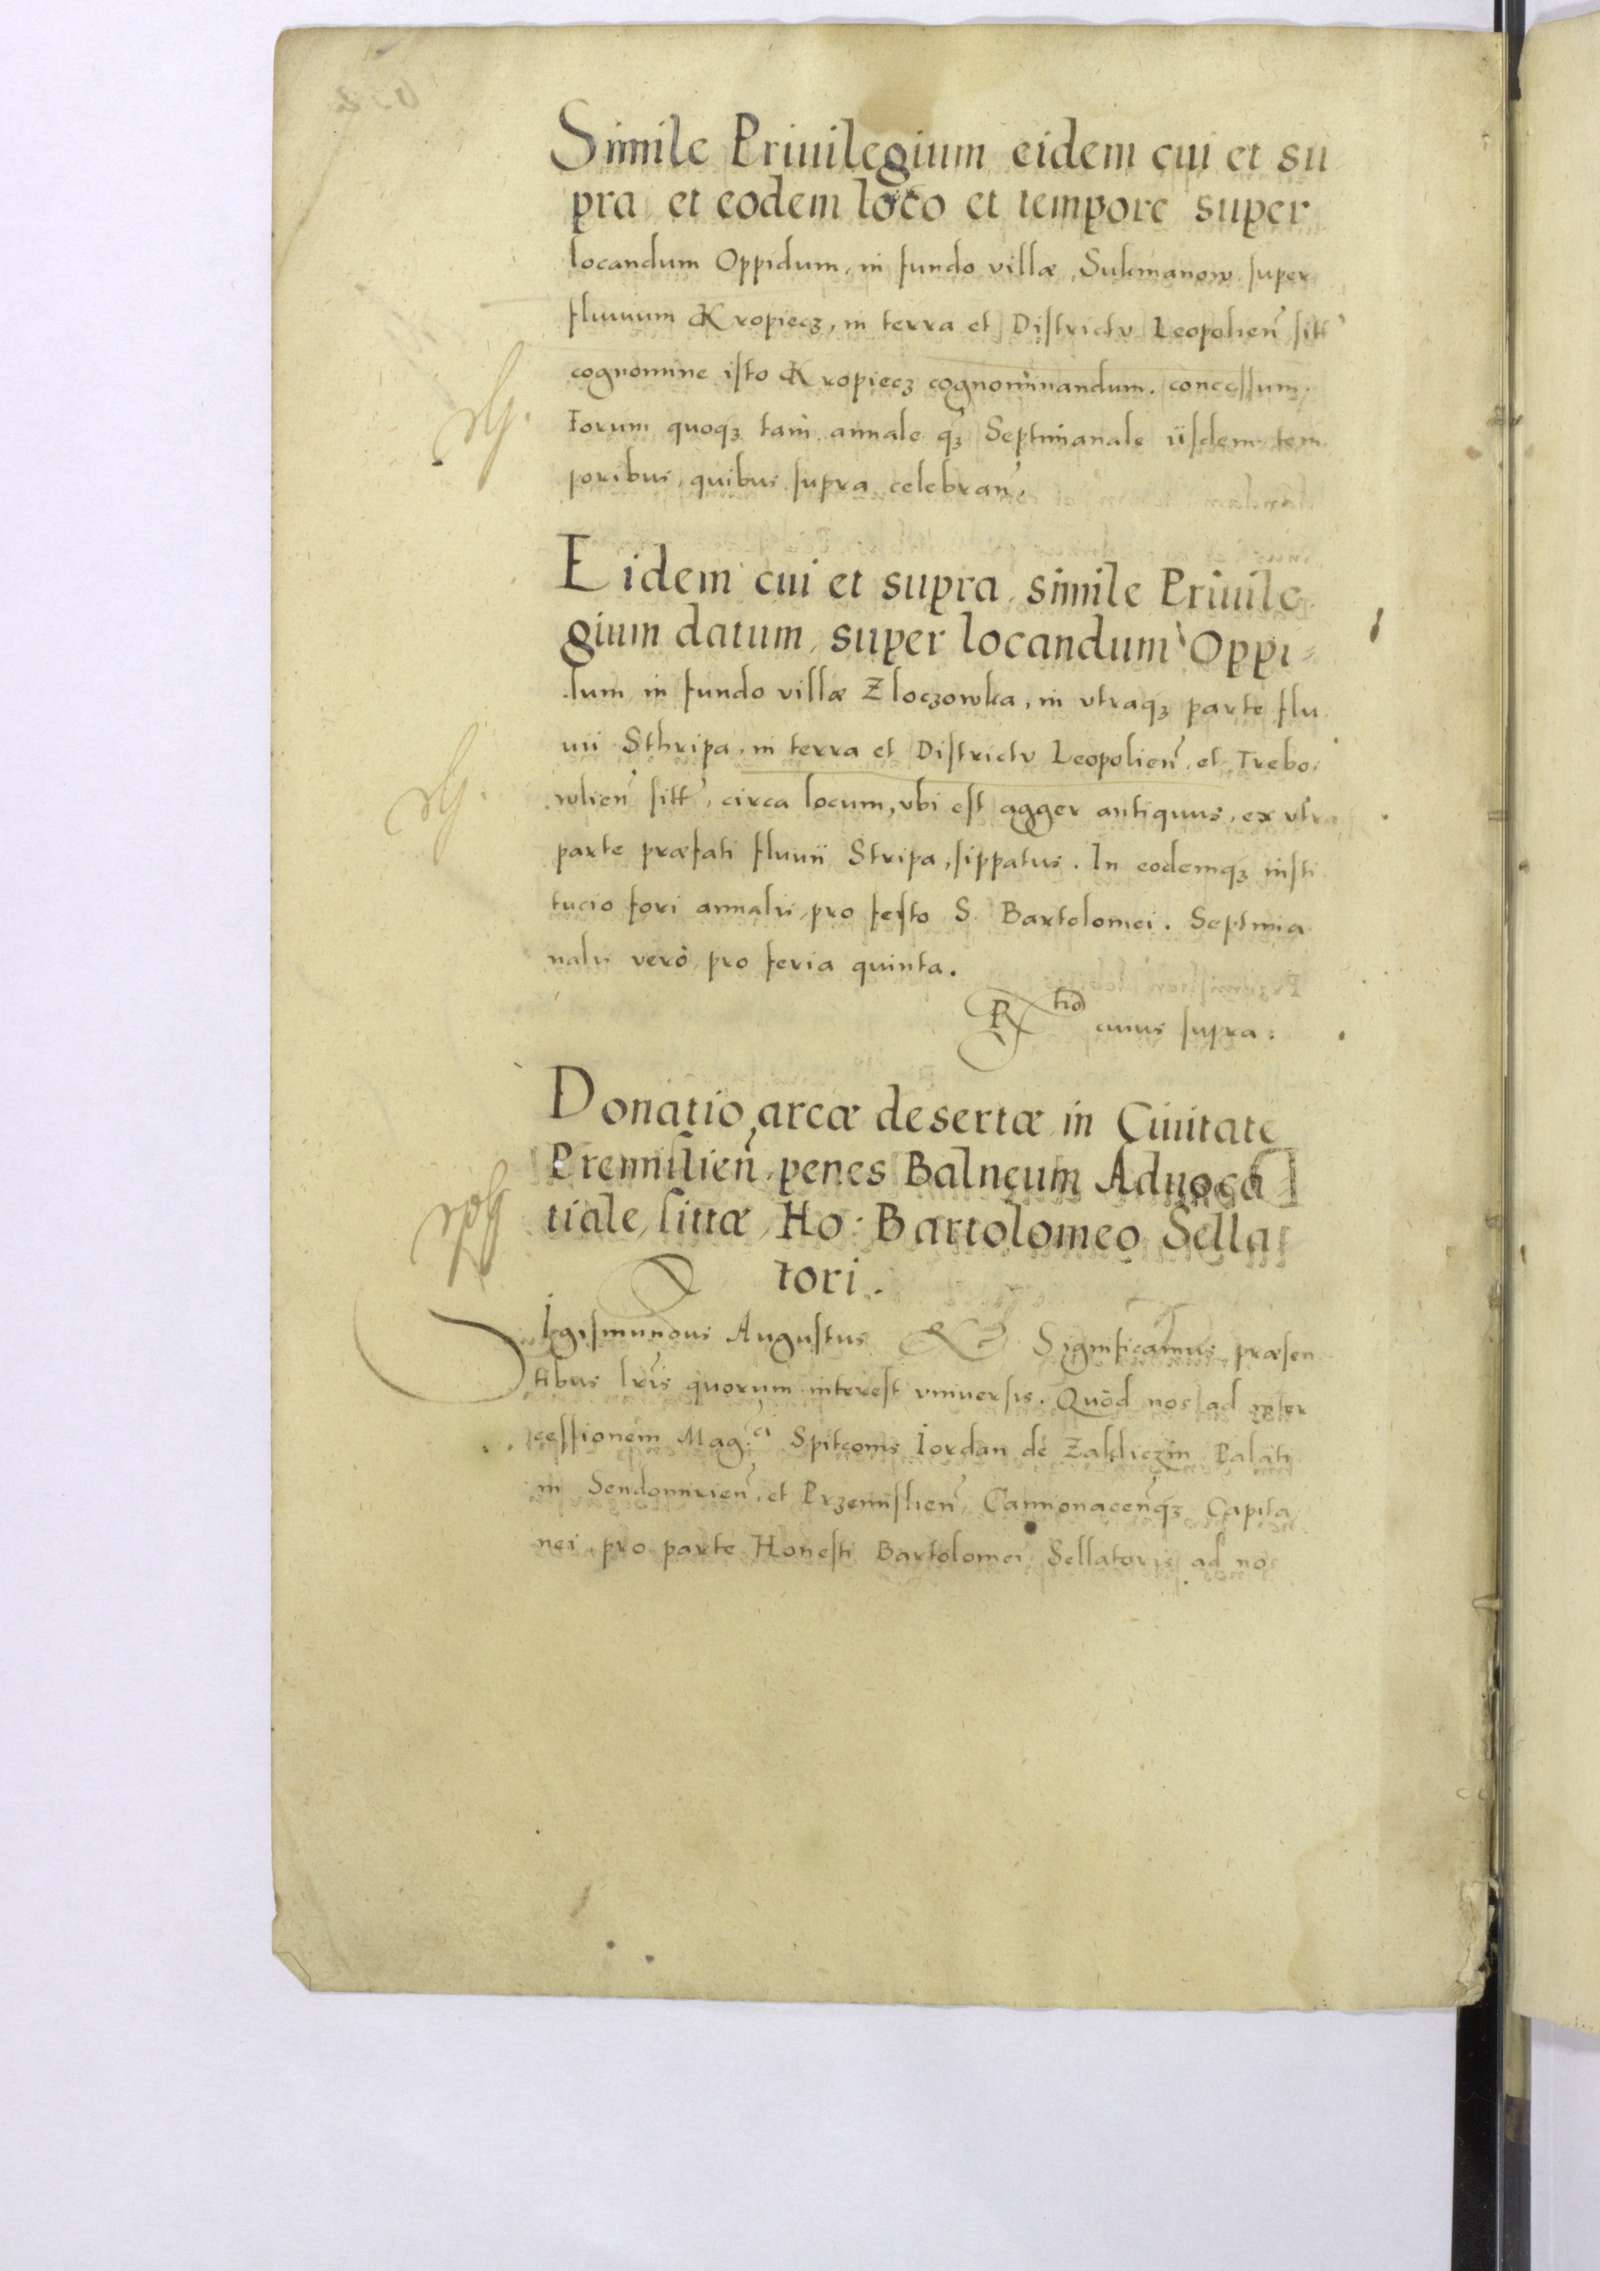 Simile Priuilegium eidem cui et su
pra et eodem loco et tempore super
locandum Oppidum, in fundo villæ Sulimanow super
fluuium Kropiecz, in terra et Districtu Leopolien̄ sitt
cognomine isto Kropiecz cognominandum. concessum.
Forum quoqz tam annale qz Septimanale iisdem tem
poribus, quibus supra celebran̄.
Eidem cui et supra simile Priuile
gium datum, super locandum Oppi=
dum in fundo villæ Zloczowka, in vtraqz parte flu
uii Sthripa, in terra et Districtu Leopolien̄ et Trebo
wlien̄ sitt, circa locum, vbi est agger antiquus, ex vtra
parte præfati fluuii Stripa, sippatus. In eodemqz insti
tucio fori annalis, pro festo S. Bartolomei. Septima
nalis verò pro feria quinta.
Rtio cuius supra.
Donatio areæ desertæ in Ciuitate
Premislien̄, penes Balneum Aduoca
tiale, sittæ, Ho: Bartolomeo Sella
tori.
Sigismundus Augustus &c Significamus præsen
tibus lr̄is quorum interest vniuersis. Quòd nos ad inter
cessionem Mag.ci Spitconis Iordan de Zakliczin Palati
ni Sendomirien̄, et Przemislien̄ Camionacen̄qz Capita
nei, pro parte Honesti Bartolomei Sellatoris ad nos